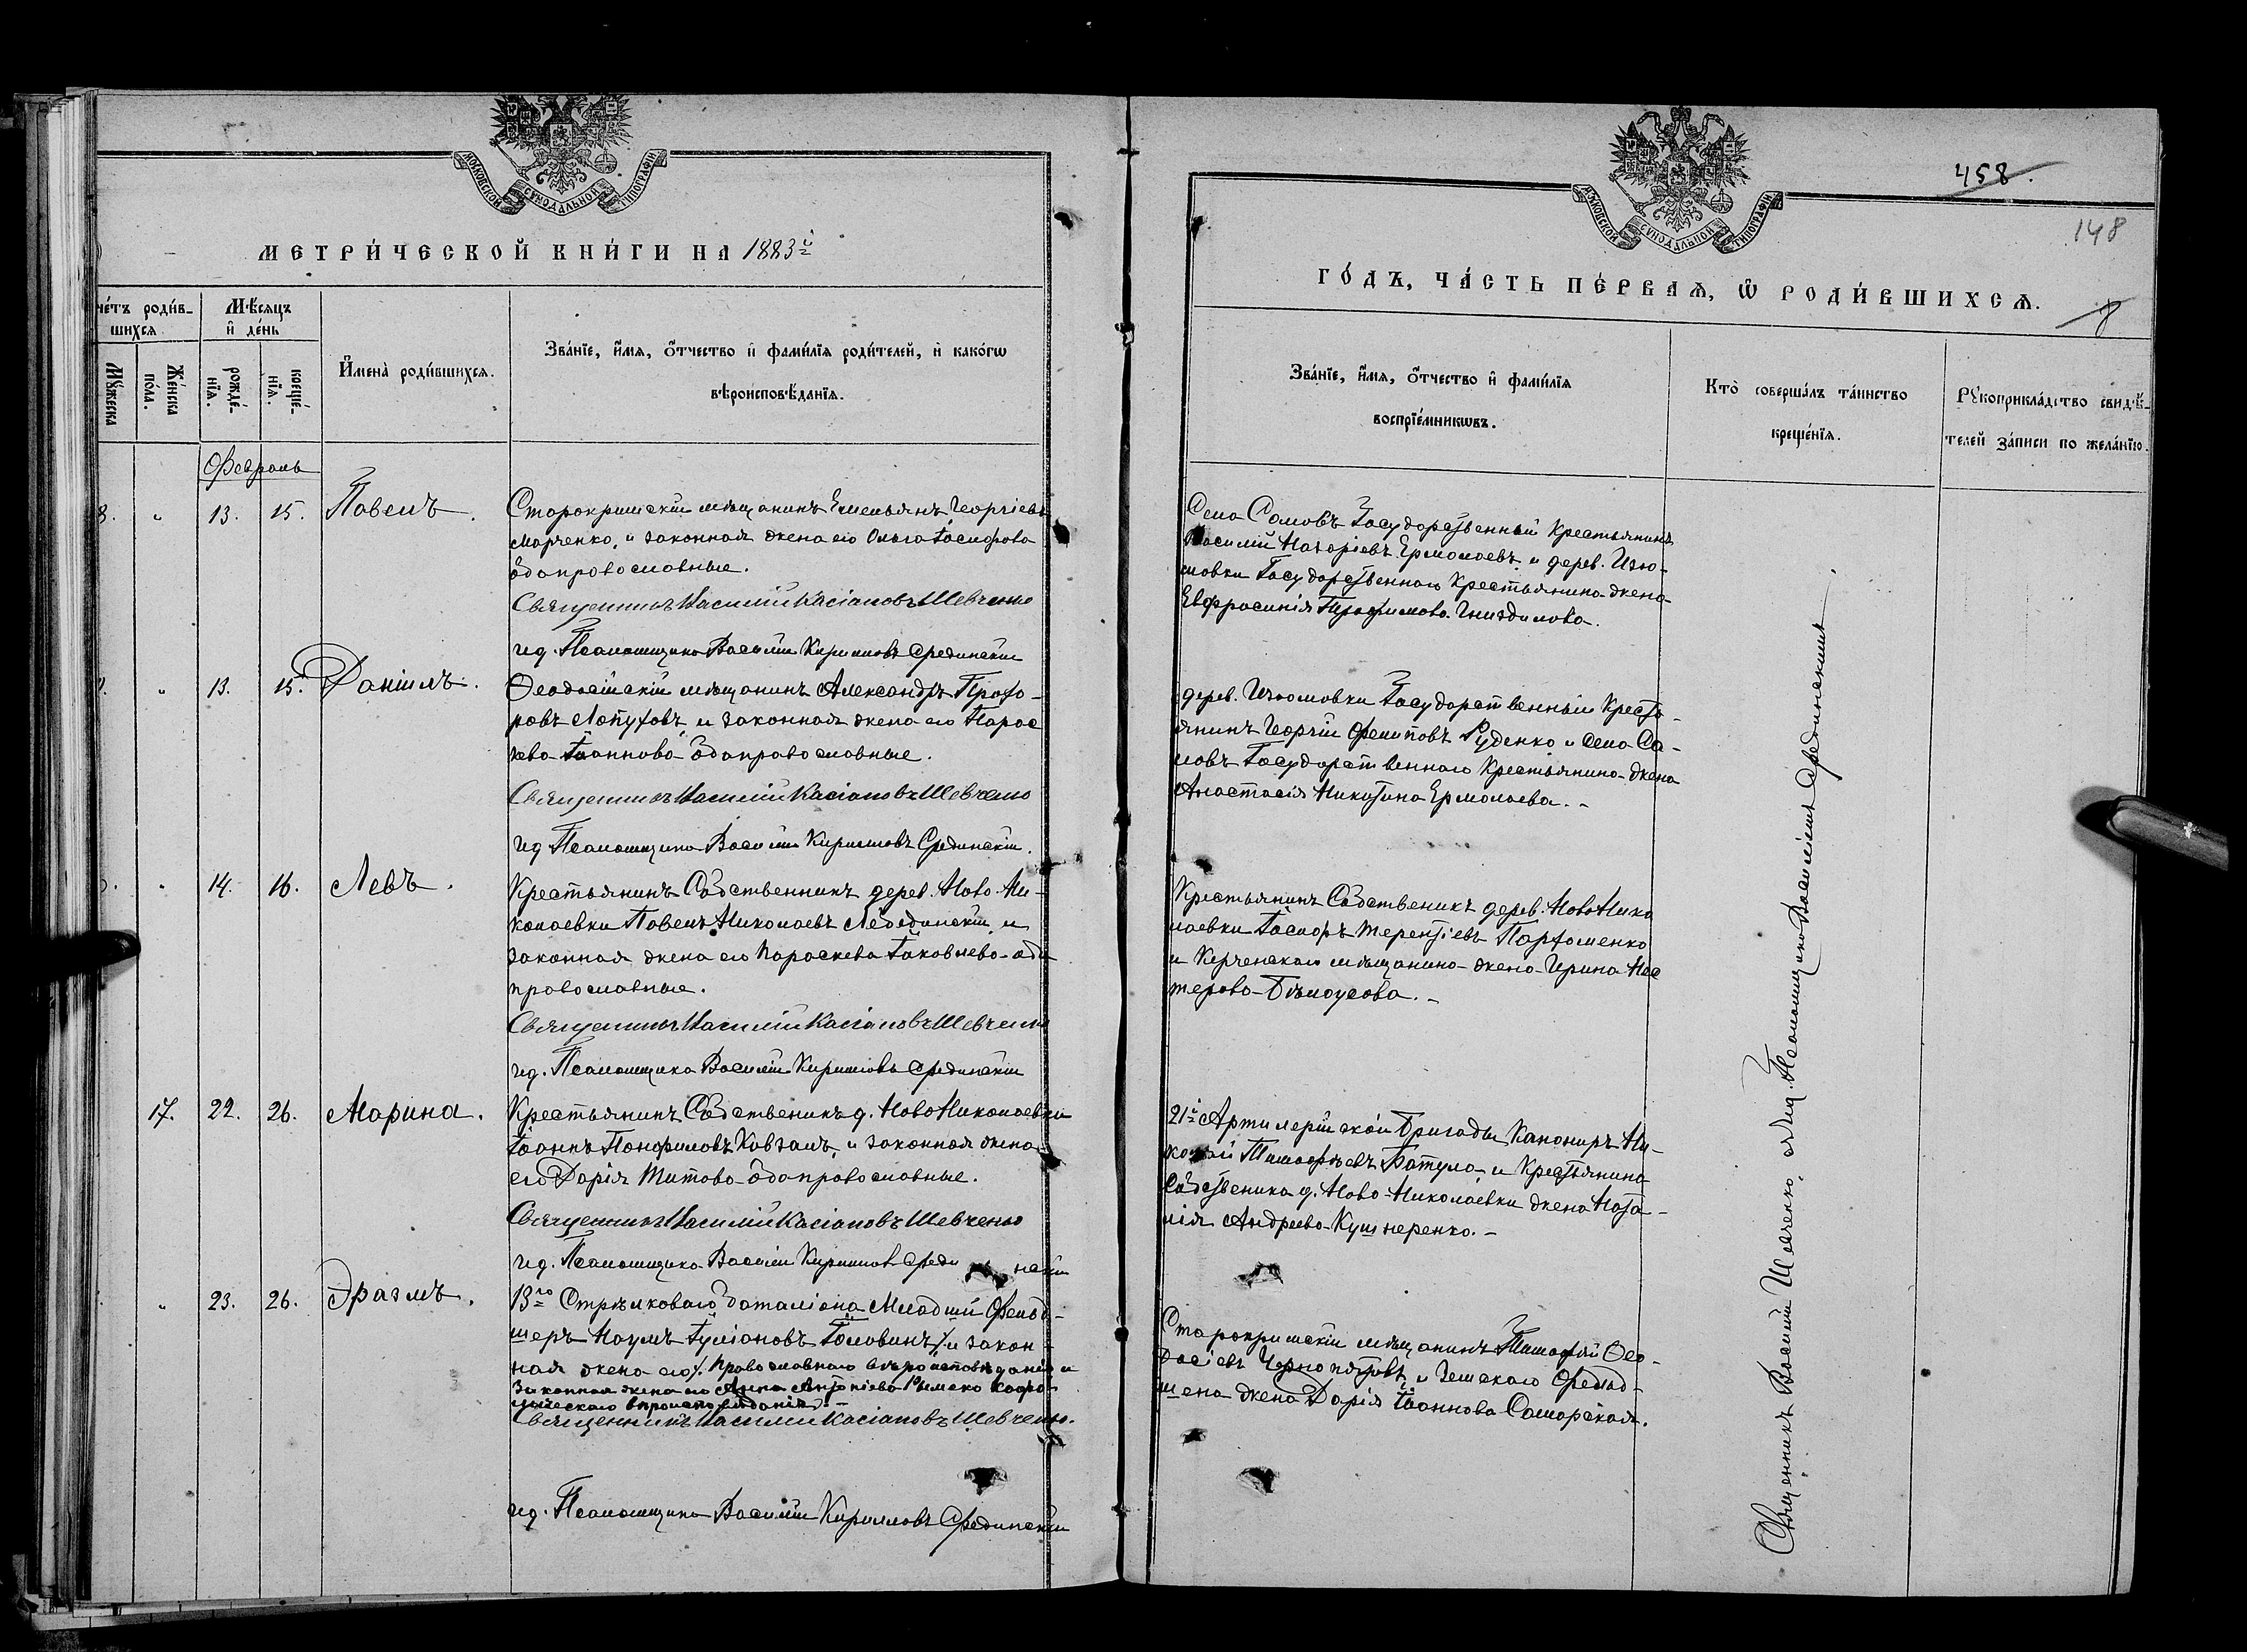 МОСКОВСКОЙ СѴНОДАЛЬНОЙ ТИПОГРАФІИ
МЕТРИ́ЧЕСКОЙ КНИ́ГИ НА 1883й
че́тъ роди́в-
шихся
Мѣ́сяцъ
и де́нь
Мꙋ́жеска
Же́нска
по́ла.
рожде́-
нїѧ.
креще́-
нїѧ.
И҆мена̀ роди́вшихся.
Зва́нїе, и҆́мѧ, ѻ҆́тчество и҆ фами́лїѧ роди́телей, и҆ како́гѡ
вѣроисповѣ́данїѧ.
Февраль
8. „ 13. 15. Павелъ.
Старокрымскій мѣщанинъ Емельянъ Георгіевъ
Марченко, и законная жена его Ольга Іосифова
оба православные.
Священникъ Василій Касіановъ Шевченко
ид. Псаломщика Василій Кирилловъ Срединскій
„ 13. 15. Даніилъ.
Ѳеодосійскій мѣщанинъ Александръ Прохо-
ровъ Лопуховъ, и законная жена его Парас
кева Іоаннова оба православные.
Священникъ Василій Касіановъ Шевченко
ид. Псаломщика Василій Кирилловъ Срединскій.
„ 14. 16. Левъ.
Крестьянинъ Собственникъ дерев. Ново-Ни-
колаевки Павелъ Николаевъ Лебединскій, и
законная жена его Параскева Іаковлева-оба
православные.
Священникъ Василій Касіановъ Шевченко
ид. Псаломщика Василій Кирилловъ Срединскій
17. 22. 26. Марина.
Крестьянинъ Собственикъ д. Ново Николаевки
Іоаннъ Понфиловъ Ковгалъ, и законная жена
его Дарія Титова-оба православные.
Священникъ Василій Касіановъ Шевченко
ид. Псаломщика Василій Кирилловъ Среди нскій
„ 23. 26. Эразмъ.
13го Стрѣлковаго баталіона Младшій Фельд-
шеръ Наумъ Іуліановъ Головинъ ⁒ и закон-
ная жена его ⁒. Православнаго вѣроисповѣданія и
Законная жена его Анна Антоніева Римско Кафо-
лическаго вѣроисповѣданія.-
Священникъ Василій Касіановъ Шевченко.
ид. Псаломщика Василій Кирилловъ Срединскій
458.
148
8
МОСКОВСКОЙ СѴНОДАЛЬНОЙ ТИПОГРАФІИ
ГО́ДЪ, ЧА́СТЬ ПЕ́РВАѦ, Ѽ РОДИ́ВШИХСѦ.
Зва́нїе, и҆́мѧ, ѻ҆́тчество и҆ фами́лїѧ
воспрїе́мникѡвъ.
Кто̀ соверша́лъ та́инство
креще́нїѧ.
Рꙋкоприкла́дство свидѣ́-
телей за́писи по жела́нїю.
Села Саловъ Государственный Крестьянинъ
Василій Назаріевъ Ермолаевъ, и дерев. Изю-
мовки Государственнаго Крестьянина-жена
Евфросинія Трофимова Гниздилова.
дерев. Изюмовки Государственный Кресть-
янинъ Георгій Филиповъ Руденко и села Са-
ловъ Государственнаго Крестьянина-жена
Анастасія Никитина Ермолаева.-
Крестьянинъ Собственикъ дерев. Ново Нико
лаевки Іасноръ Терентіевъ Пархоменко
и Керченскаго мѣщанина-жена-Ирина Нес
терова-Бѣлоусова.-
21й Артилерійской Бригады Канониръ Ни-
колай Тимофѣевъ Батула-и Крестьянина
Собственика д. Ново-Николаевки жена Ната-
лія Андреева-Кушнеренко.-
Старокрымскій мѣщанинъ Тимофѣй Ѳео-
досіевъ Чернопятовъ, и Земскаго Фельд-
шера жена Дарія Іоаннова Самарская.
Священникъ Василій Шевченко, съ ид. Псаломщика Василіемъ Срединскимъ